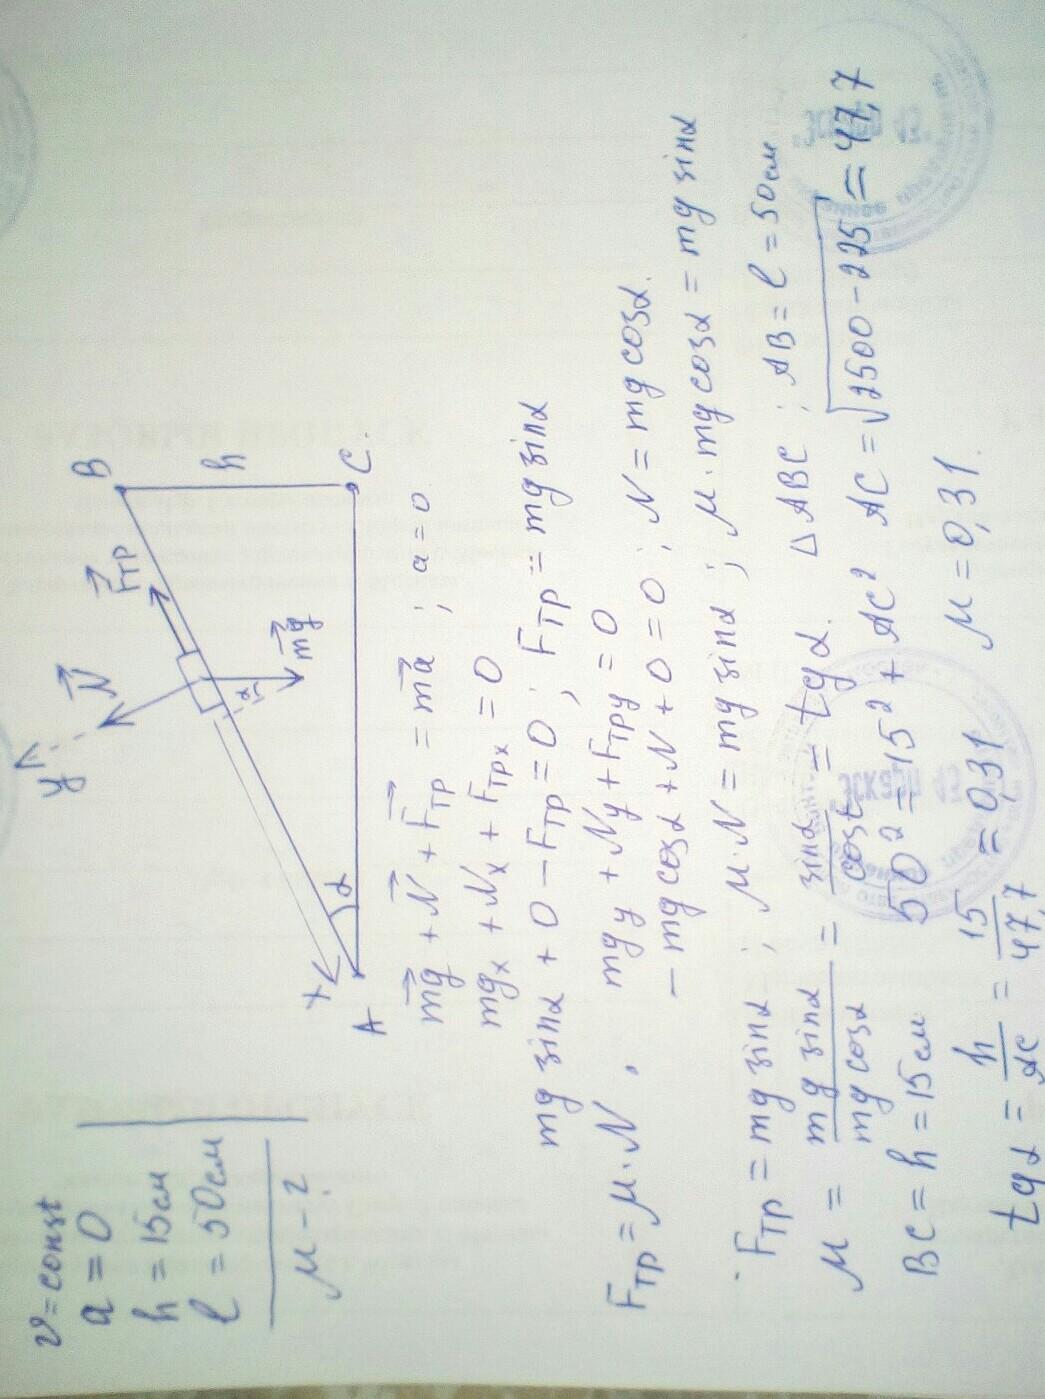 v = const
a = 0
h = 15 см
l = 50 см
μ - ?
y
N⃗
F⃗тр
B
h
α
mg⃗
x
α
A
C.
mg⃗ + N⃗ + F⃗тр = ma⃗ ; a = 0
mgx + Nx + Fтрx = 0
mg sinα + 0 - Fтр = 0 ; Fтр = mg sinα
Fтр = μ·N .
mgy + Ny + Fтрy = 0
- mg cosα + N + 0 = 0 ; N = mg cosα.
Fтр = mg sinα ; μ·N = mg sinα ; μ·mg cosα = mg sinα
μ = mg sinα / mg cosα = sinα / cosα = tgα.
△ABC ; AB = l = 50 см
BC = h = 15 см 50² = 15² + AC² AC = √2500-225 = 47,7
tgα = h / AC = 15 / 47,7 = 0,31 μ = 0,31.